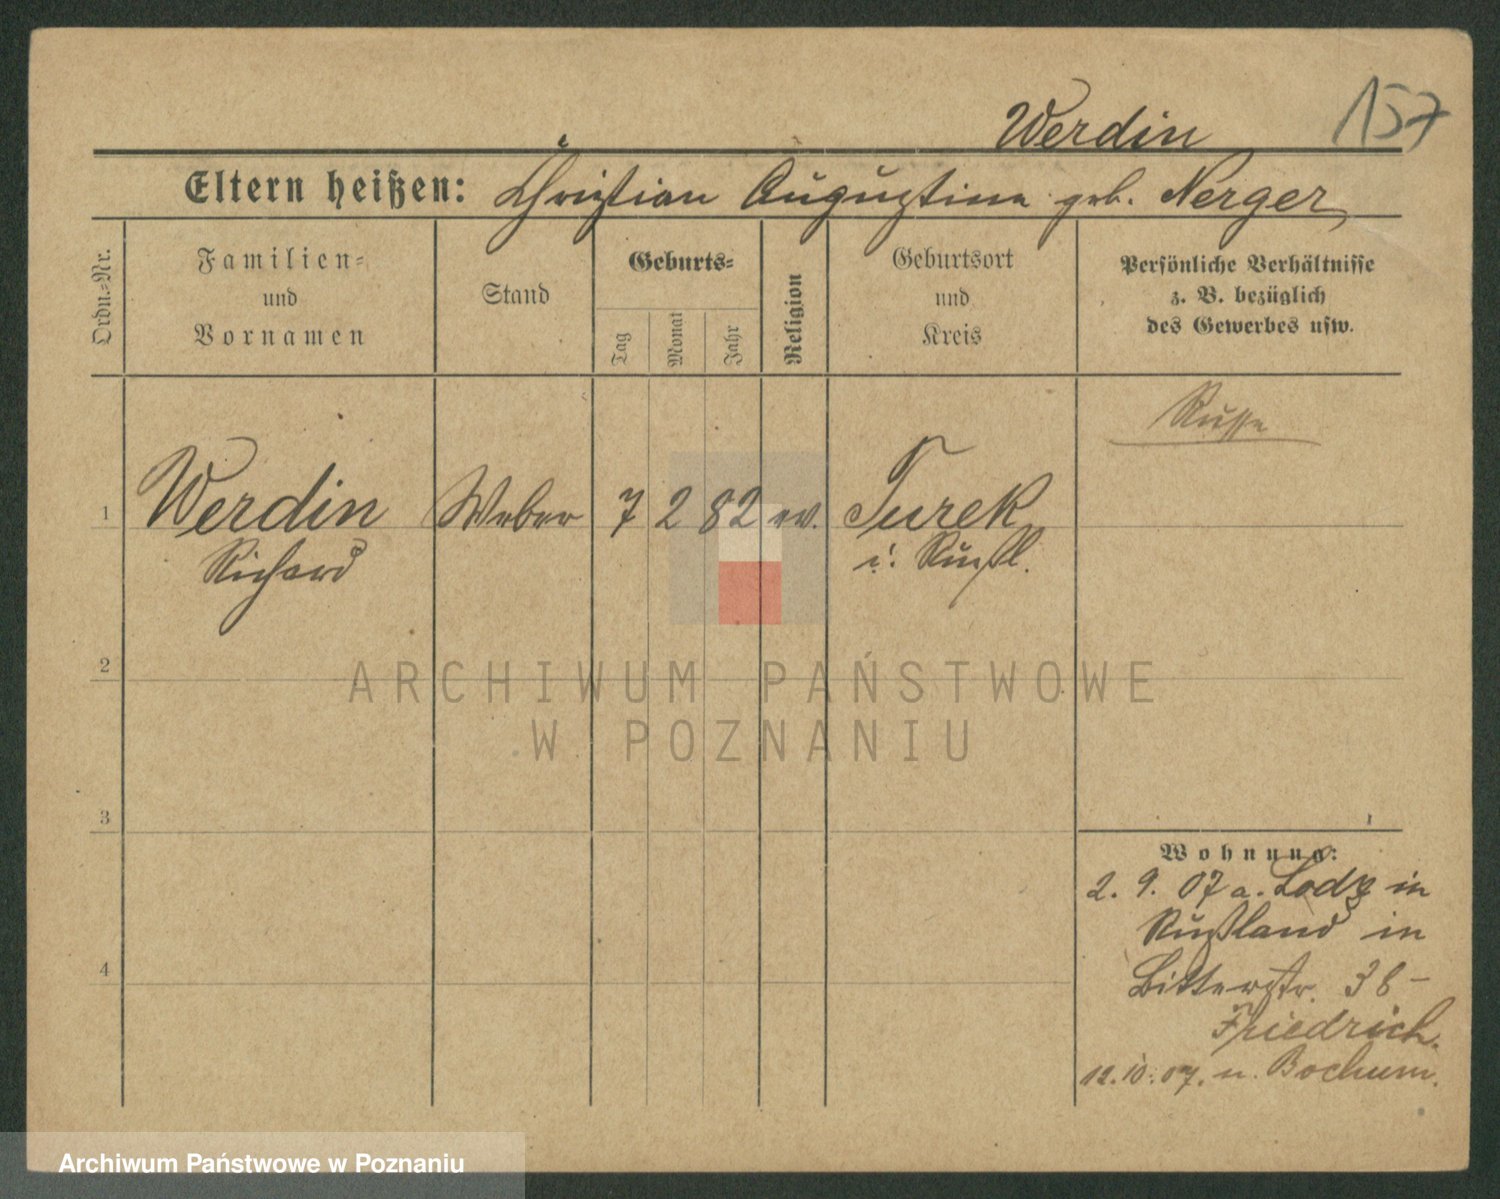 157
Werdin
Eltern heißen: Christian Augustine geb. Nerger
Ordn.-Nr.
Familien-
und
Vornamen
Stand
Geburts-
Tag
Monat
Jahr
Religion
Geburtsort
und
Kreis
Persönliche Verhältnisse
z. B. bezüglich
des Gewerbes usw.
Russe
1 Werdin Weber 7 2 82 ev. Turek
Richard i. Rußl.
2
3
4
ARCHIWUM PAŃSTWOWE
W POZNANIU
Wohnung:
2. 9. 07 a. Lodz in
Rußland in
Bitterstr. 38 -
Friedrich.
12.10.07. n. Bochum.
Archiwum Państwowe w Poznaniu